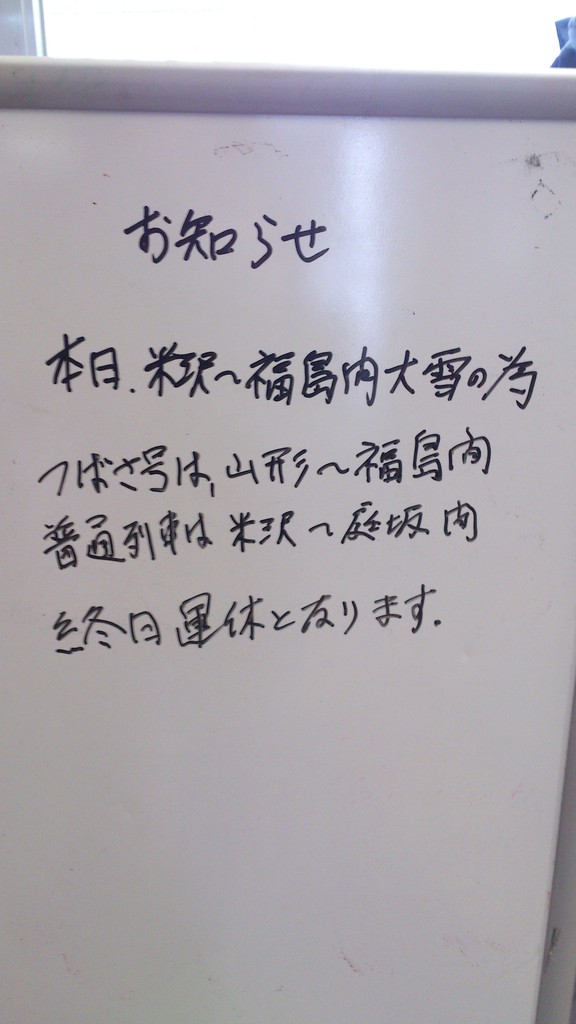 お知らせ
本日、米沢〜福島間大雪の為
つばさ号は、山形〜福島間
普通列車は米沢〜庭坂間
終日運休となります。